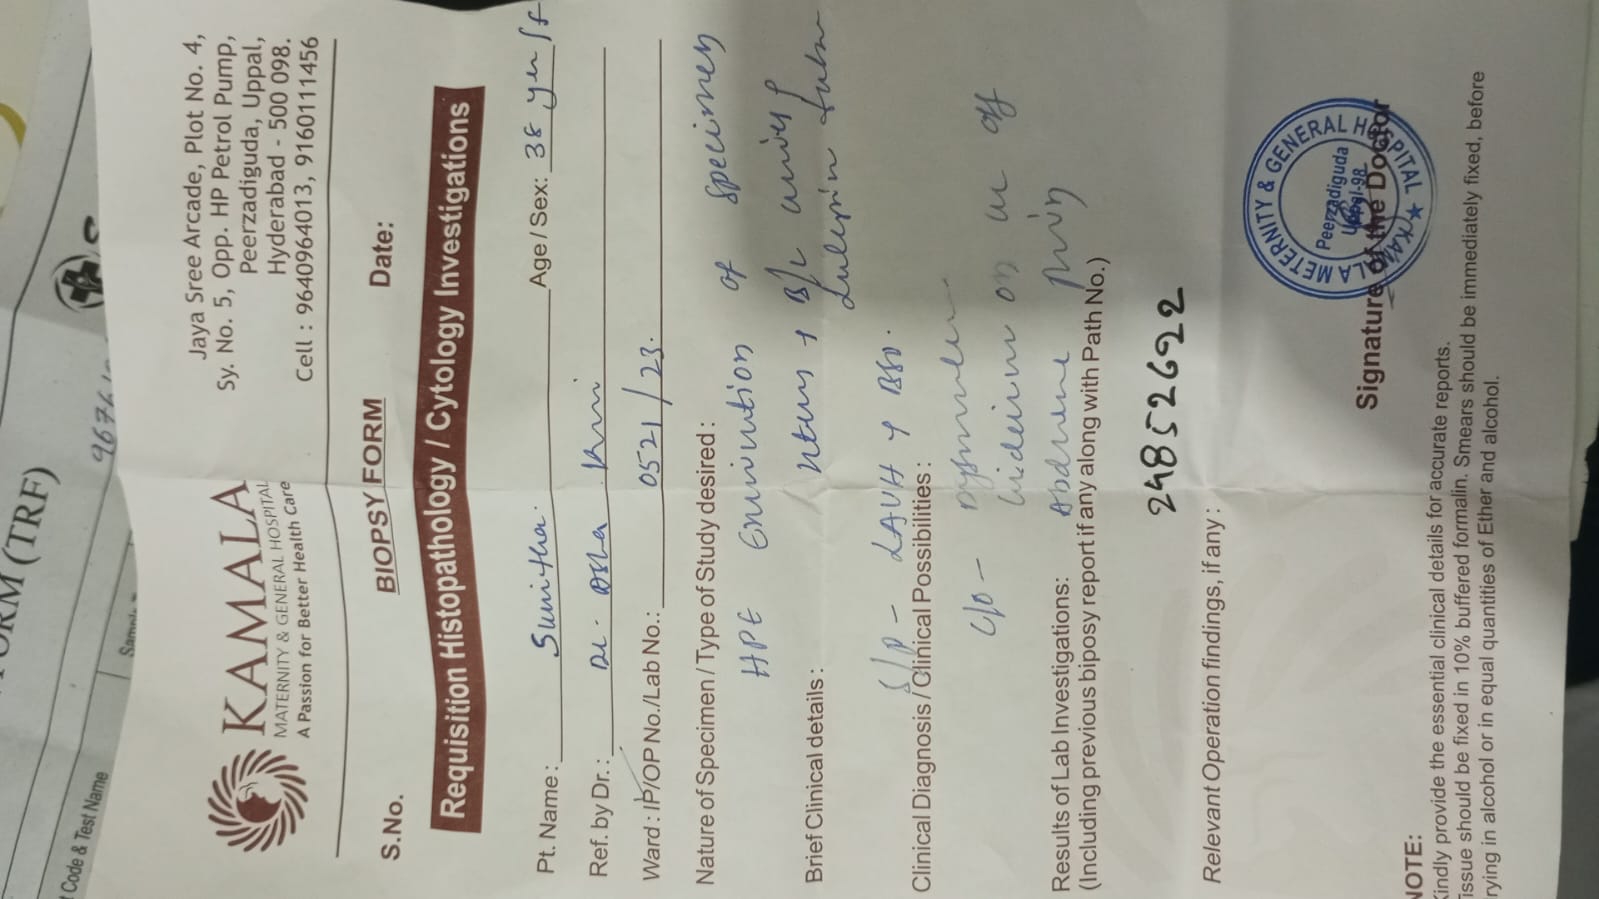 FORM (TRF)
9676
Code & Test Name
KAMALA
MATERNITY & GENERAL HOSPITAL
A Passion for Better Health Care
Jaya Sree Arcade, Plot No. 4,
Sy. No. 5, Opp. HP Petrol Pump,
Peerzadiguda, Uppal,
Hyderabad - 500 098.
Cell : 9640964013, 9160111456
S.No. BIOPSY FORM Date:
Requisition Histopathology / Cytology Investigations
Pt. Name : Sunitha. Age / Sex: 38 yrs / f
Ref. by Dr. : Dr. Usha Rani
Ward : IP/OP No./Lab No.: 0521/23.
Nature of Specimen / Type of Study desired :
HPE of specimen
Brief Clinical details : uterus + B/L
S/p - LAVH + BSO.
Clinical Diagnosis / Clinical Possibilities :
c/o - on off
Results of Lab Investigations:
(Including previous biposy report if any along with Path No.)
24852622
Relevant Operation findings, if any :
KAMALA METERNITY & GENERAL HOSPITAL
Peerzadiguda
Uppal-98
Signature of the Doctor
NOTE:
Kindly provide the essential clinical details for accurate reports.
Tissue should be fixed in 10% buffered formalin. Smears should be immediately fixed, before
rying in alcohol or in equal quantities of Ether and alcohol.